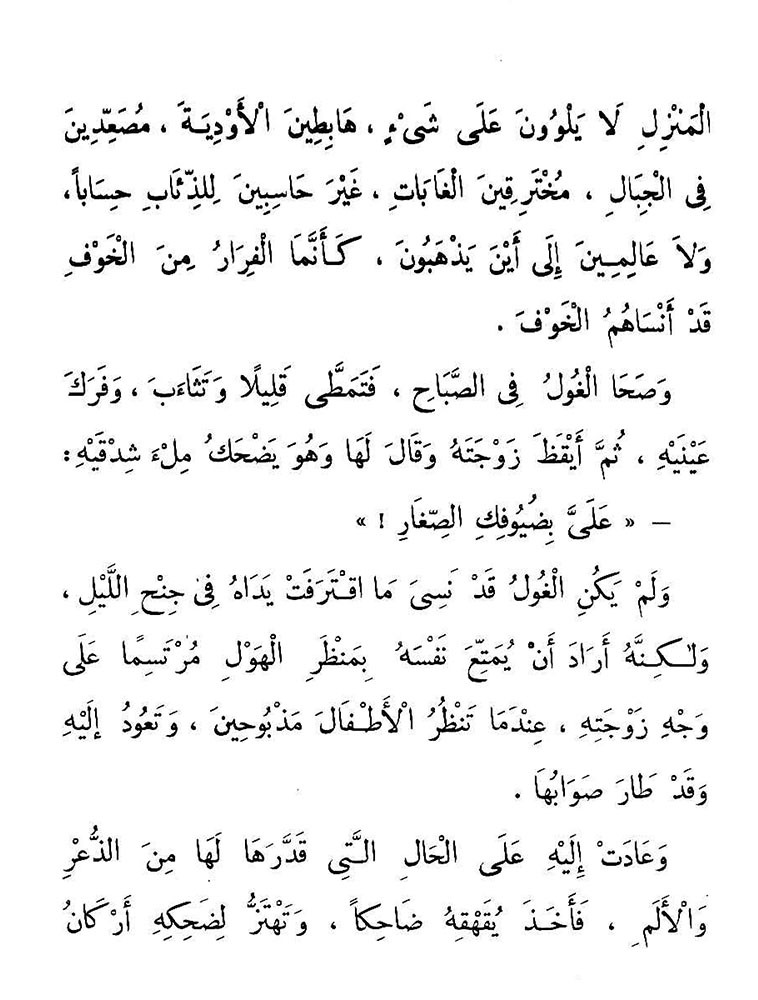 الْمَنْزِلِ لَا يَلْوُونَ عَلَى شَىْءٍ ، هَابِطِينَ الْأَوْدِيَةَ ، مُصَعِّدِينَ
فِى الْجِبَالِ ، مُخْتَرِقِينَ الْغَابَاتِ ، غَيْرَ حَاسِبِينَ لِلذِّئَابِ حِسَاباً،
وَلاَ عَالِمِينَ إِلَى أَيْنَ يَذْهَبُونَ ، كَأَنَّمَا الْفِرَارُ مِنَ الْخَوْفِ
قَدْ أَنْسَاهُمُ الْخَوْفَ .
وَصَحَا الْغُولُ فِى الصَّبَاحِ ، فَتَمَطَّى قَلِيلًا وَتَثَاءَبَ ، وَفَرَكَ
عَيْنَيْهِ ، ثُمَّ أَيْقَظَ زَوْجَتَهُ وَقَالَ لَهَا وَهُوَ يَضْحَكُ مِلْءَ شِدْقَيْهِ :
— « عَلَىَّ بِضُيُوفِكِ الصِّغَارِ ! »
وَلَمْ يَكُنِ الْغُولُ قَدْ نَسِىَ مَا اقْتَرَفَتْ يَدَاهُ فِى جِنْحِ اللَّيْلِ ،
وَلٰكِنَّهُ أَرَادَ أَنْ يُمَتِّعَ نَفْسَهُ بِمَنْظَرِ الْهَوْلِ مُرْتَسِمًا عَلَى
وَجْهِ زَوْجَتِهِ ، عِنْدَمَا تَنْظُرُ الْأَطْفَالَ مَذْبُوحِينَ ، وَتَعُودُ إِلَيْهِ
وَقَدْ طَارَ صَوَابُهَا .
وَعَادَتْ إِلَيْهِ عَلَى الْحَالِ الَّتِى قَدَّرَهَا لَهَا مِنَ الذُّعْرِ
وَالْأَلَمِ ، فَأَخَذَ يُقَهْقِهُ ضَاحِكاً ، وَتَهْتَزُّ لِضَحِكِهِ أَرْكَانُ